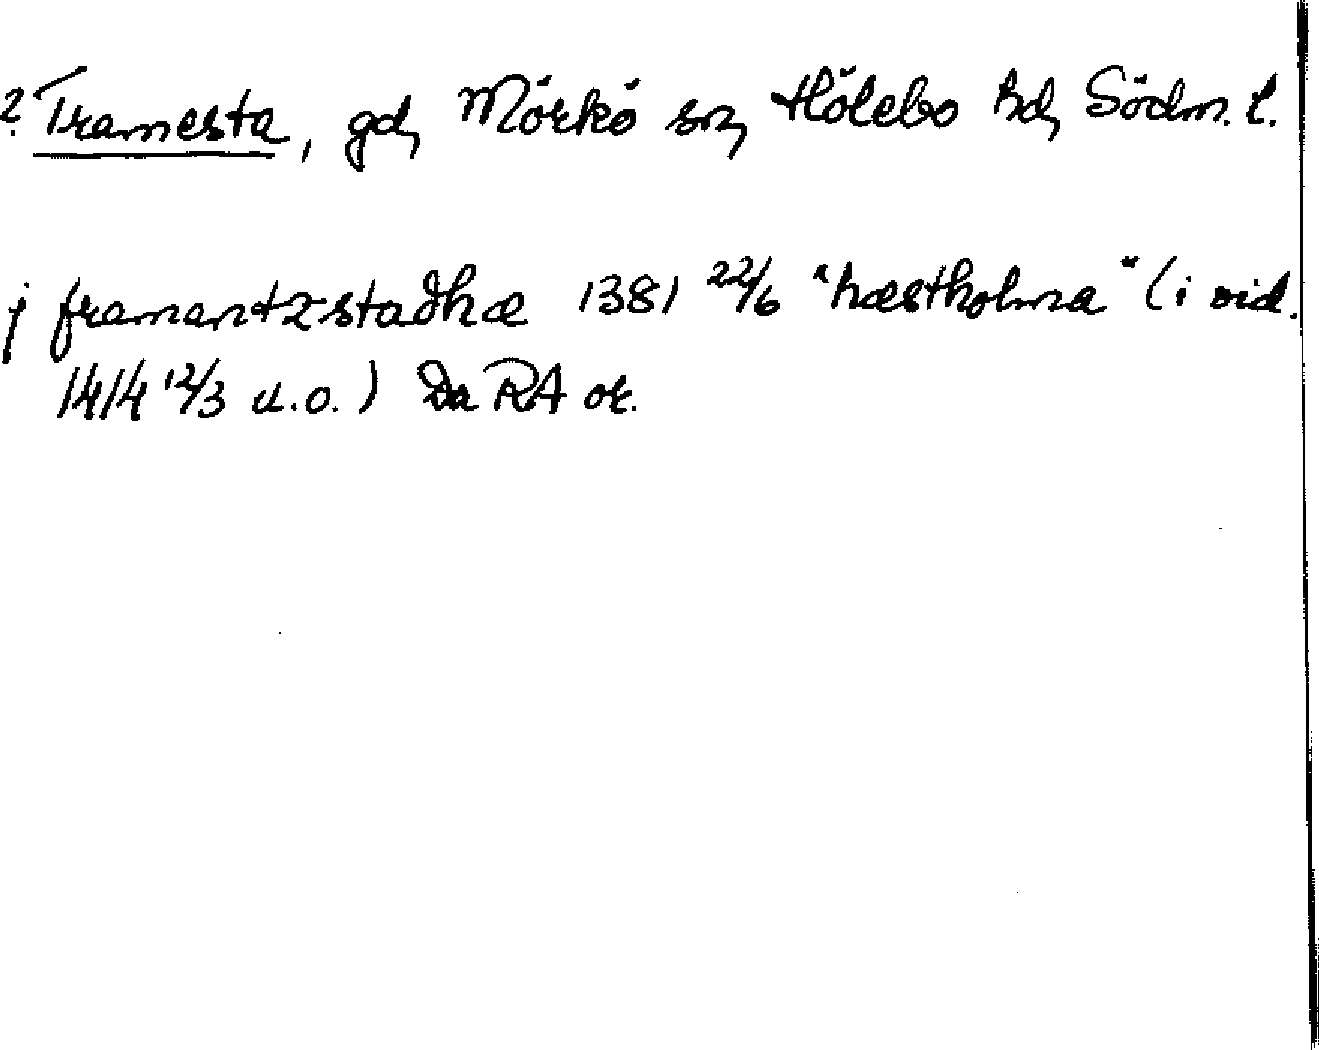 ? Tramesta, gd, Mörkö sn, Hölebo hd, Södm. l.
j framantzstadhæ 1381 22/6 "hæstholma" (i vid.
1414 12/3 u.o.) Da RA or.